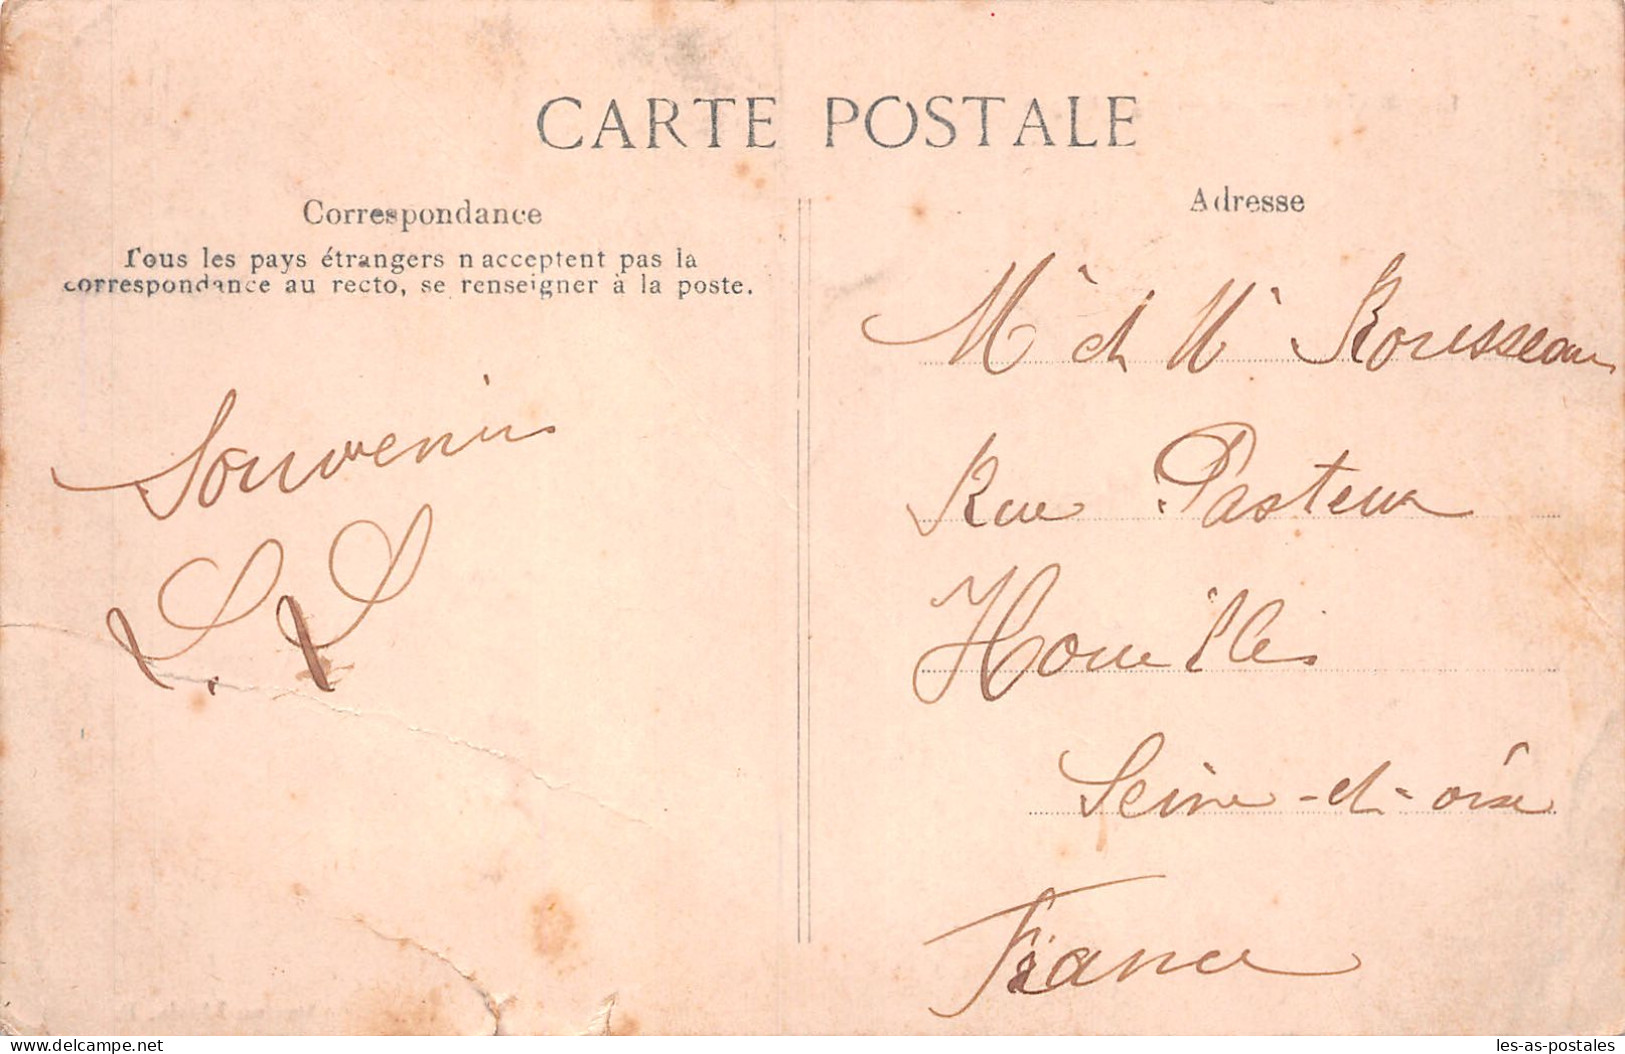 CARTE POSTALE
Correspondance
Tous les pays étrangers n'acceptent pas la
correspondance au recto, se renseigner à la poste.
Souvenirs
L. L
Adresse
Mr et Me Rousseau
Rue Pasteur
Houilles
Seine-et-oise
France
delcampe.net
les-as-postales